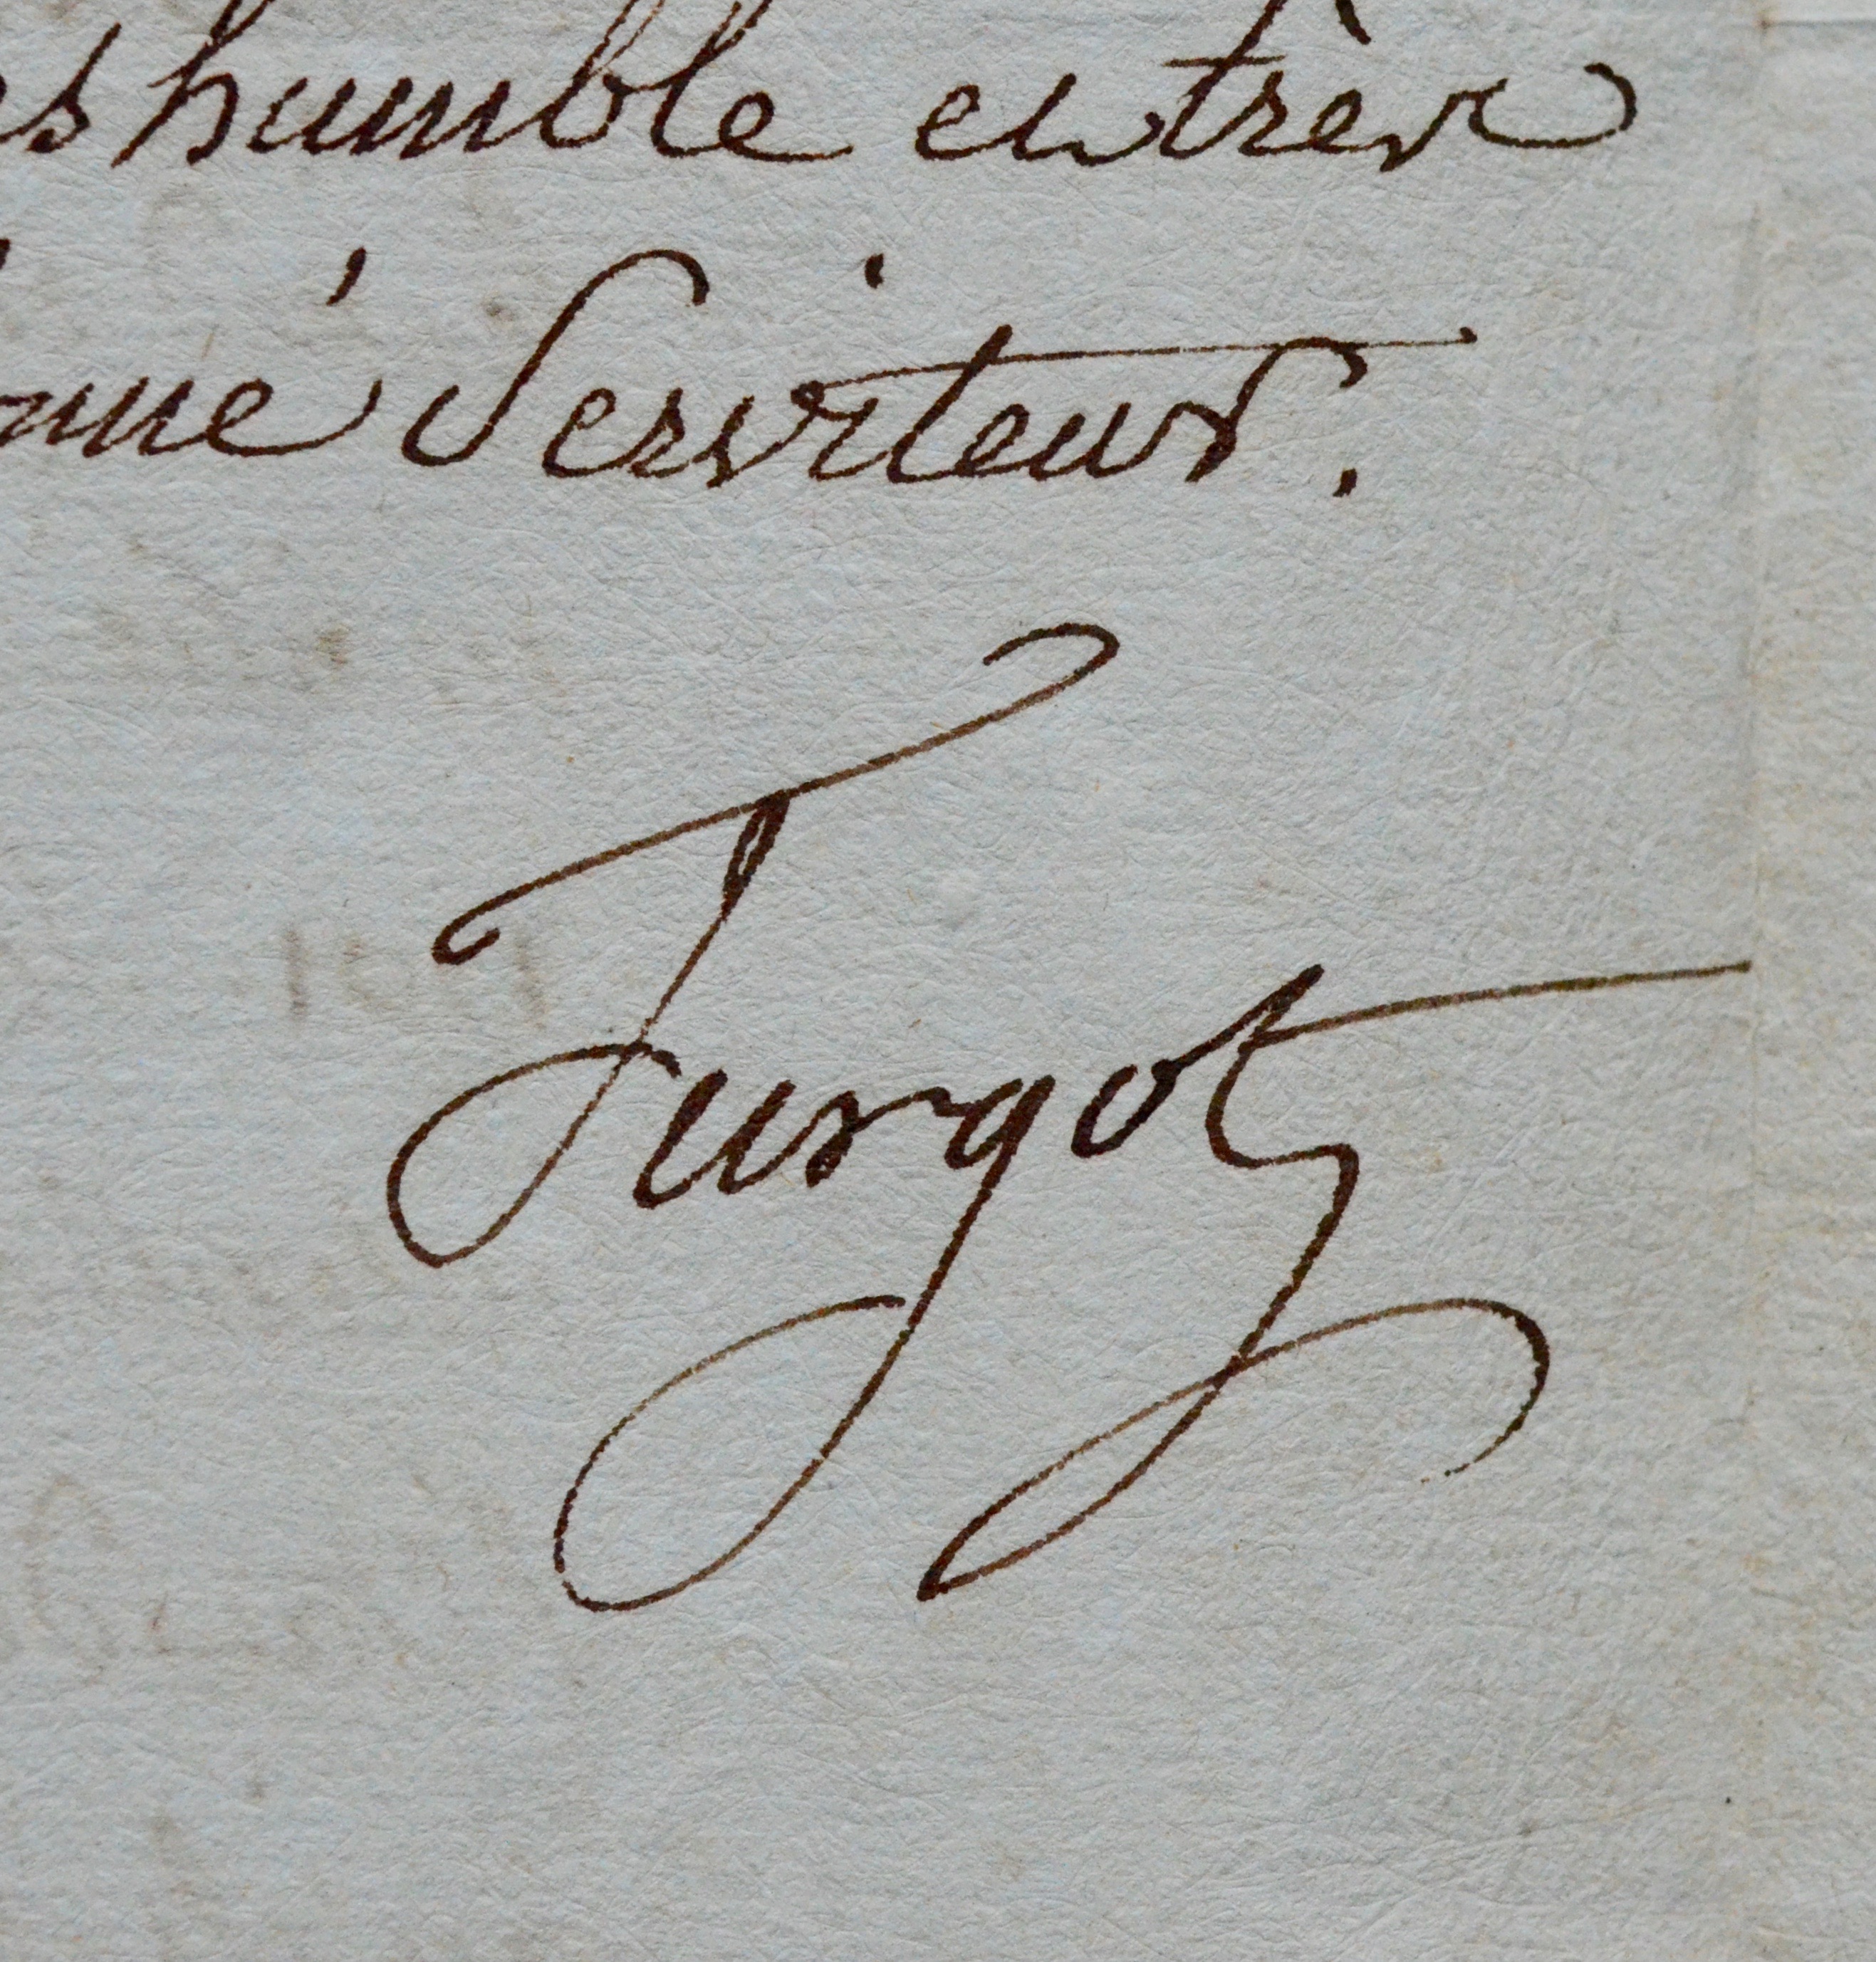 es humble et très
onné Serviteur.
Turgot